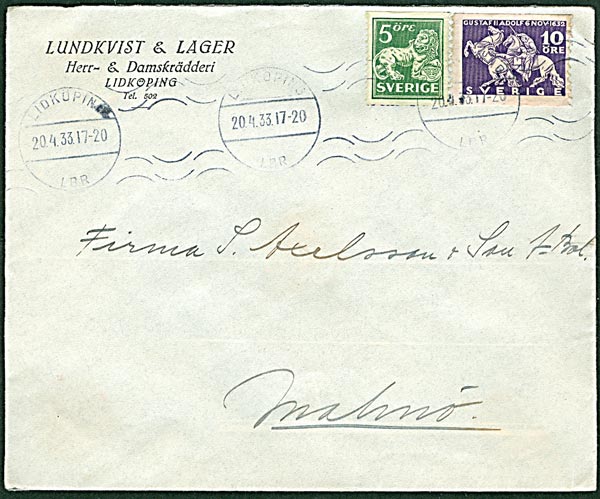 LUNDKVIST & LAGER
Herr- & Damskrädderi
LIDKÖPING
Tel. 502
5 ÖRE
SVERIGE
GUSTAF II ADOLF 6 NOV. 1632
10 ÖRE
SVERIGE
LIDKÖPING
20.4.33.17-20
LBR
LIDKÖPING
20.4.33.17-20
LBR
20.4.33.17-20
LBR
Firma S. Axelsson & Son A-Bol.
Malmö.